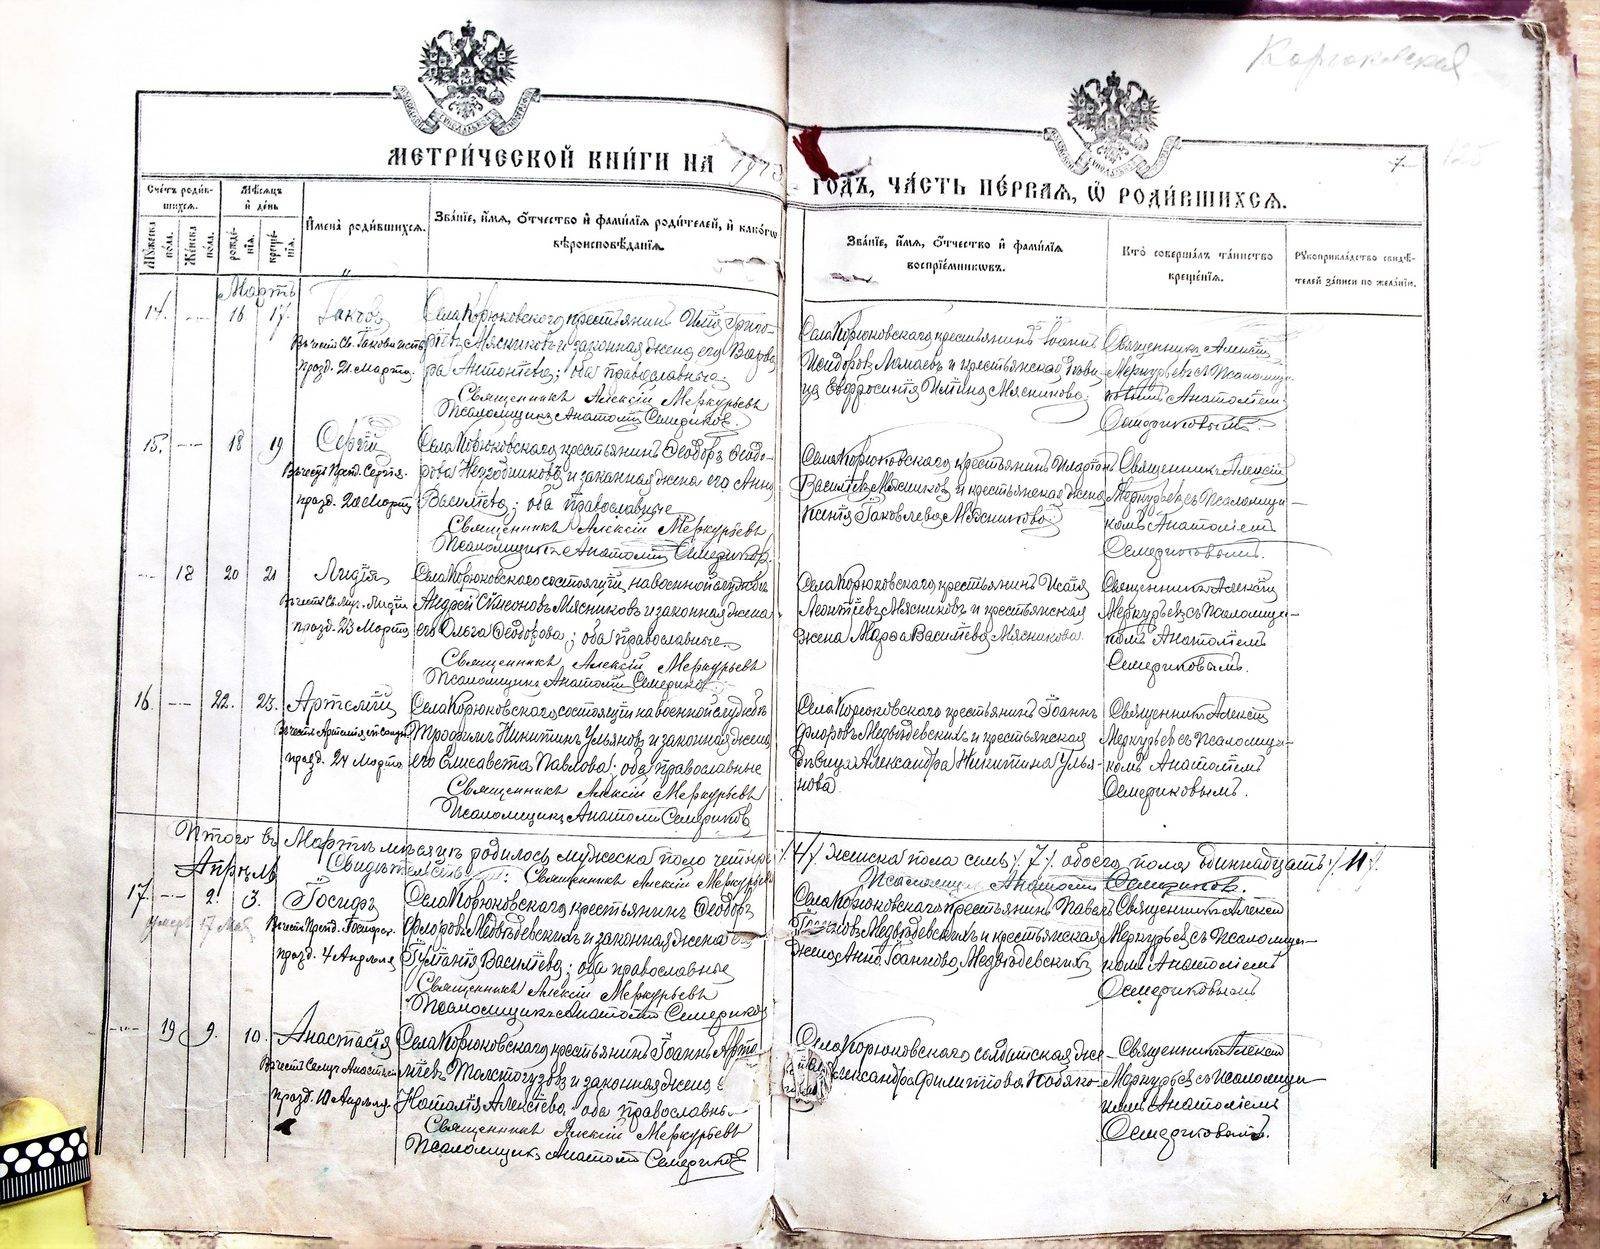 Коргоковская
МЕТРИЧЕСКОЙ КНИГИ НА
ГОДЪ, ЧАСТЬ ПЕРВАЯ, Ѡ РОДИВШИХСЯ.
7
125
Счетъ родив-
шихся.
Мѣсяцъ
и день
Мужеска
пола.
Женска
пола.
рожде-
нія.
креще-
нія.
Имена родившихся.
Званіе, имя, отчество и фамилія родителей, и какогѡ
вѣроисповѣданія.
Званіе, имя, отчество и фамилія
воспріемниковъ.
Кто совершалъ таинство
крещенія.
Рукоприкладство свидѣ-
телей записи по желанію.
Мартъ
14. 16 17. Іаковъ
Въ честь Св. Іакова
празд. 21 Марта
Села Корюковскаго крестьянинъ Григо-
рьевъ Мясниковъ и законная жена его Варва-
ра Антонова; оба православные
Священникъ Алексій Меркурьевъ
Псаломщикъ Анатолій Семериковъ.
Села Корюковскаго крестьянинъ Іоаннъ
Исидоровъ и крестьянская дѣви-
ца Евфросинія Мясникова.
Священникъ Алексій
Меркурьевъ съ Псаломщи-
комъ Анатоліемъ
Семериковымъ.
15. 18 19 Сергій
Въ честь Преп. Сергія.
празд. 20 Марта
Села Корюковскаго крестьянинъ Ѳеодоръ Ѳеодо-
ровъ и законная жена его Анна
Васильева; оба православные
Священникъ Алексій Меркурьевъ
Псаломщикъ Анатолій Семериковъ.
Села Корюковскаго крестьянинъ
Васильевъ Мясниковъ и крестьянская жена
Ксенія Іаковлева Мясникова
Священникъ Алексій
Меркурьевъ съ Псаломщи-
комъ Анатоліемъ
Семериковымъ.
18 20 21 Лидія
Въ честь Св. Муч. Лидіи
празд. 23 Марта
Села Корюковскаго состоящій на военной службѣ
Андрей Симоновъ Мясниковъ и законная жена
его Ольга Ѳеодорова; оба православные
Священникъ Алексій Меркурьевъ
Псаломщикъ Анатолій Семериковъ
Села Корюковскаго крестьянинъ Исаія
Леонтіевъ Мясниковъ и крестьянская
жена Марѳа Васильева Мясникова
Священникъ Алексій
Меркурьевъ съ Псаломщи-
комъ Анатоліемъ
Семериковымъ.
16. 22. 23. Артемій
празд. 24 Марта
Села Корюковскаго состоящій на военной службѣ
Трофимъ Никитинъ Ульяновъ и законная жена
его Елисавета Павлова; оба православные
Священникъ Алексій Меркурьевъ
Псаломщикъ Анатолій Семериковъ
Села Корюковскаго крестьянинъ Іоаннъ
Флоровъ Медвѣдевскихъ и крестьянская
дѣвица Александра Никитина Улья-
нова
Священникъ Алексій
Меркурьевъ съ Псаломщи-
комъ Анатоліемъ
Семериковымъ.
Итого въ Мартѣ мѣсяцѣ родилось мужеска пола четыре /4/ женска пола семь /7/ обоего пола одиннадцать /11/.
Священникъ Алексій Меркурьевъ
Псаломщикъ Анатолій Семериковъ.
Апрѣль
17. 2. 3. Іосифъ
умеръ 17 Мая
Въ честь Преп. Іосифа
празд. 4 Апрѣля
Села Корюковскаго крестьянинъ Ѳеодоръ
Флоровъ Медвѣдевскихъ и законная жена его
Іуліанія Васильева; оба православные
Священникъ Алексій Меркурьевъ
Псаломщикъ Анатолій Семериковъ
Села Корюковскаго крестьянинъ Павелъ
Медвѣдевскихъ и крестьянская
жена Анна Іоаннова Медвѣдевскихъ
Священникъ Алексій
Меркурьевъ съ Псаломщи-
комъ Анатоліемъ
Семериковымъ
19 9. 10. Анастасія
празд. 10 Апрѣля.
Села Корюковскаго крестьянинъ Іоаннъ
Толстогузовъ и законная жена
Наталія Алексіева, оба православны
Священникъ Алексій Меркурьевъ
Псаломщикъ Анатолій Семериковъ
Села Корюковскаго солдатская же-
Александра Филиппова
Священникъ Алексій
Меркурьевъ съ Псаломщи-
комъ Анатоліемъ
Семериковымъ.